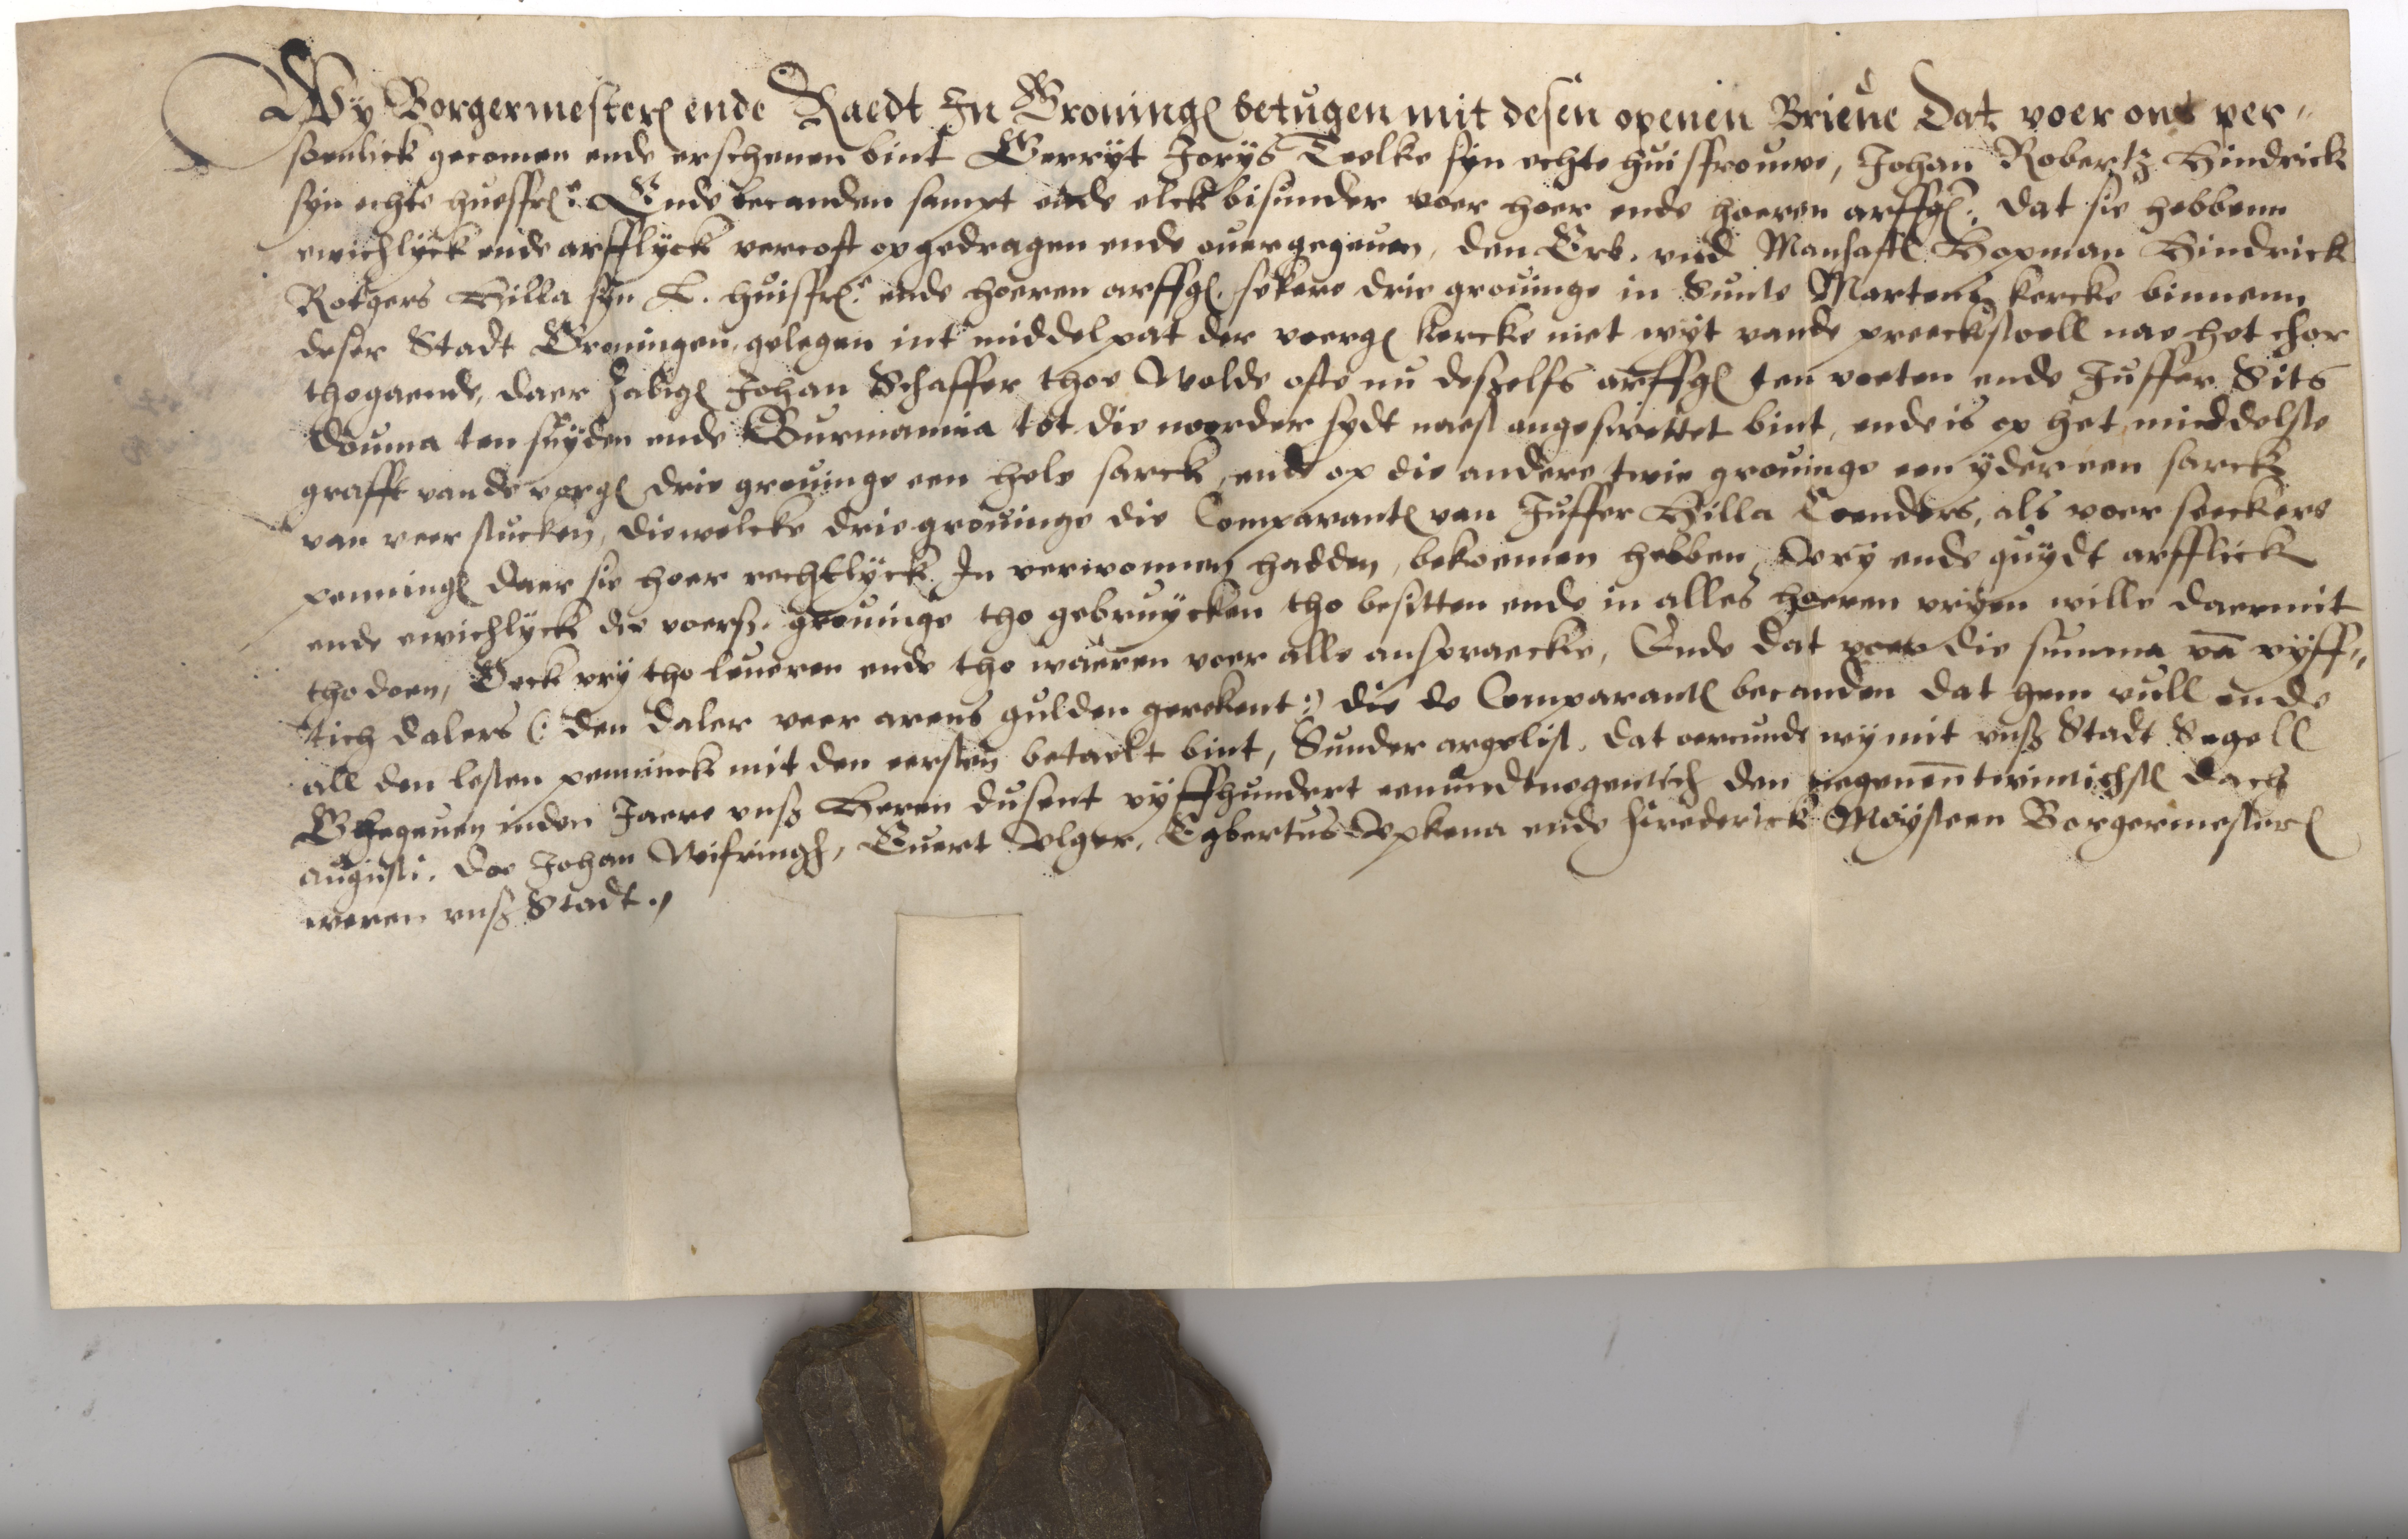 Wy Borgermesteren ende Raedt In Groningen betugen mit desen openen Brieue Dat voer ons per-
soenlick gecomen ende erschenen bint Gerryt Jorys Teelke syn echte huisfrouwe, Johan Robertz Hindrick
syn echte huesfr: Ende becanden sampt ende elck bisunder voer hoer ende hoeren arffg: dat sie hebbenn
ewichlyck ende arfflyck vercoft opgedragen ende ouergegeuen, den Erb. vnd Manhaft Hopman Hindrick
Rotgers Hilla syn E. huisfr: ende hoeren arffg. sekere drie grouinge in Sunte Martens kercke binnenn
deser Stadt Groningen, gelegen int middelpat der voerg kercke niet wyt vande preeckstoell nae het chor
thogaende, daer zalig Johan Schaffer thoe Wolde ofte nu deszelfs arffg ten voeten ende Juffer Sits
Douma ten suyden ende Burmannia tot die noorder sydt naest angeswettet bint, ende is op het middelste
grafft vande vorg drie grouinge een hele sarck, ende op die andere twie grouinge een yder een sarck
van veer stucken, diewelcke drie grouinge die Comparant van Juffer Hilla Coenders, als voer seeckere
penning daer sie hoer rechtlyck In verwonnen hadden, bekoemen hebben, Vry ende quydt arfflick
ende ewichlyck die voersz. grouinge tho gebruycken tho besitten ende in alles hoeren vryen wille daermit
tho doen, Oeck vry tho leueren ende tho waeren voer alle anspraecke, Ende dat voer die summa va vyff-
tich dalers (: den daler veer arens gulden gerekent :) die de Comparant becanden dat hem vull ende
all den lesten pennick mit den eersten betaelt bint, Sunder argelist. dat oercunde wy mit vnsz Stadt Segell
Ghegeuen inden Jaere vnsz Heren dusent vyffhundert eenundtnegentich den negenentwintichst dach
augusti. doe Johan Wifringh, Euert Ulger, Egbertus Upkena ende Frederick Moysteen Borgermester
weren vnsz Stadt.